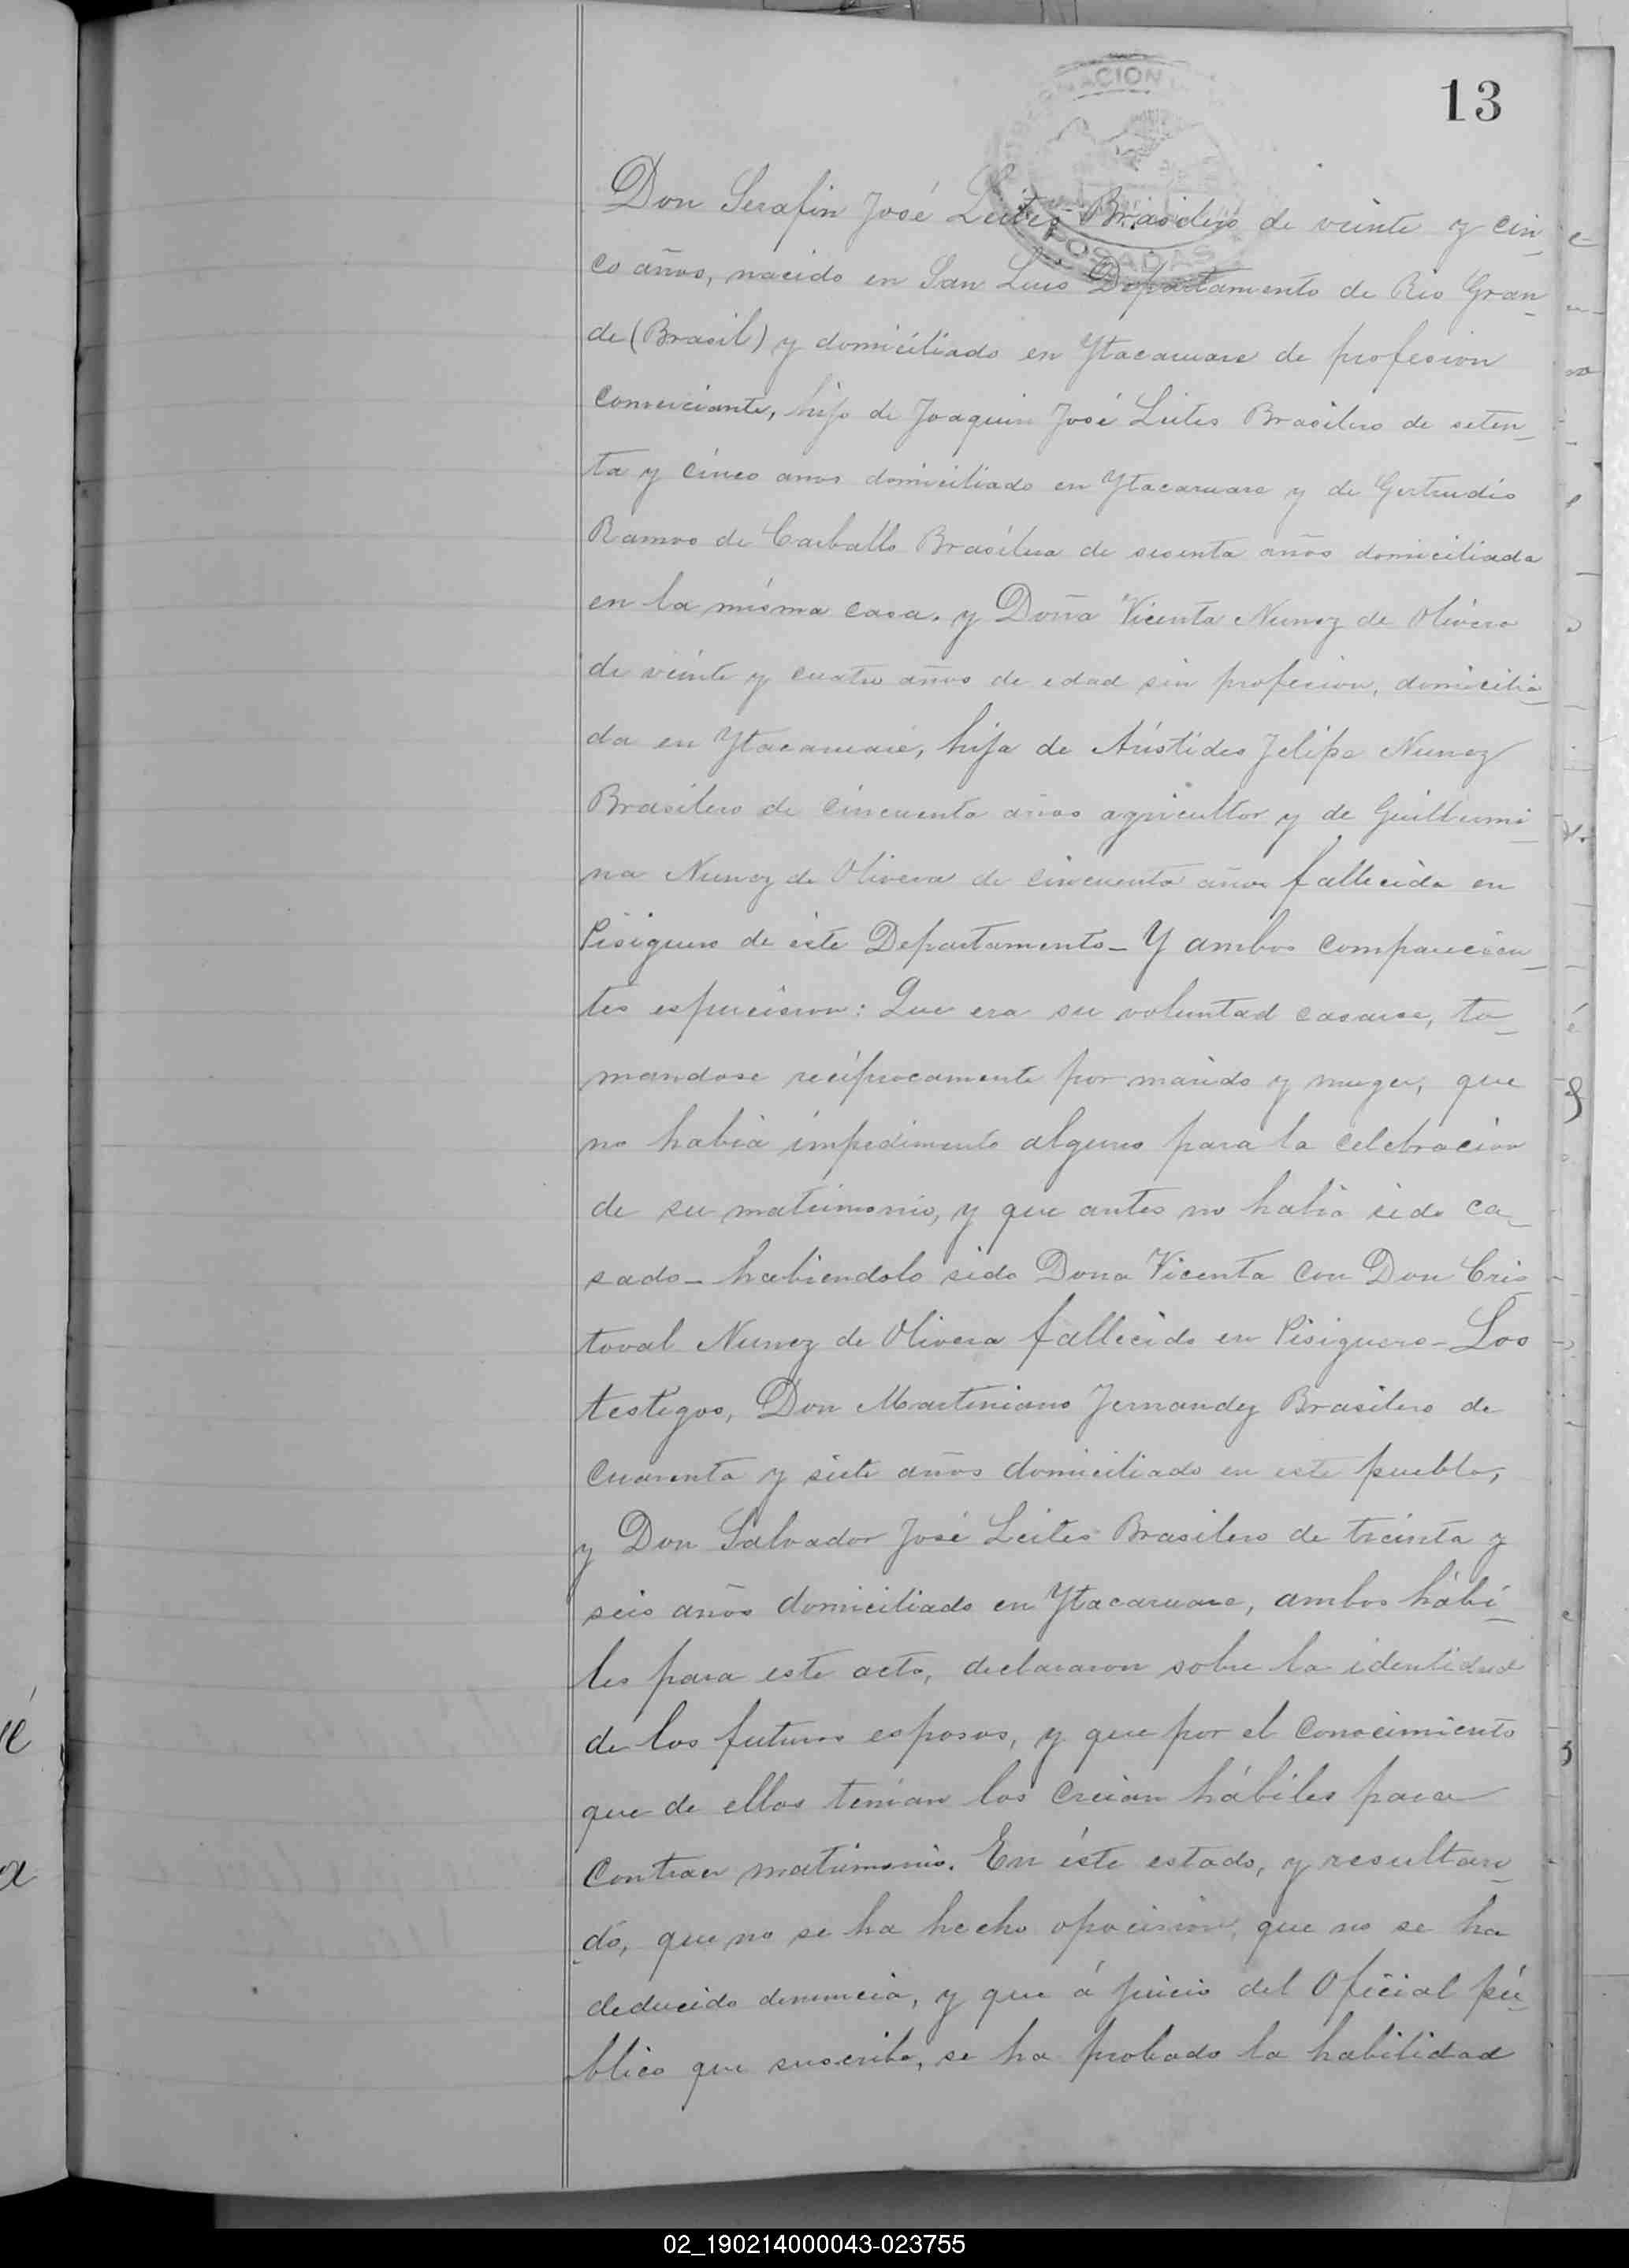 13
NACION
POSADAS
Don Serafin José Leites Brasilero de veinte y cin_
co años, nacido en San Luis Departamento de Rio Gran_
de (Brasil) y domiciliado en Ytacaruare de profesion
comerciante, hijo de Joaquin José Leites Brasilero de seten_
ta y cinco anos domiciliado en Ytacaruare y de Gertrudis
Ramos de Carballo Brasilera de sesenta años domiciliada
en la misma casa. y Doña Vicenta Nunez de Olivera
de veinte y cuatro años de edad sin profesion, domicilia_
da en Ytacaruaré, hija de Arístides Felipe Nunez
Brasilero de cincuenta años agricultor y de Guillermi_
na Nunez de Olivera de cincuenta años fallecida en
Pisiguero de éste Departamento_ Y ambos comparecien_
tes espucieron: Que era su voluntad casarse, to_
mandose recíprocamente por marido y muger, que
no había impedimento alguno para la celebracion
de su matrimonio, y que antes no habia sido ca_
sado_ habiendolo sido Dona Vicenta con Don Cris
toval Nunez de Olivera fallecido en Pisiguero_ Los
testigos, Don Martiniano Fernandez Brasilero de
cuarenta y siete años domiciliado en este pueblo,
y Don Salvador José Leites Brasilero de treinta y
seis años domiciliado en Ytacaruare, ambos hábi_
les para este acto, declararon sobre la identidad
de los futuros esposos, y que por el conocimiento
que de ellos tenían los creian hábiles para
contraer matrimonio. En éste estado, y resultan_
do, que no se ha hecho oposicion, que no se ha
deducido denuncia, y que á juicio del Oficial pú_
blico que suscribe, se ha probado la habilidad
02_190214000043-023755